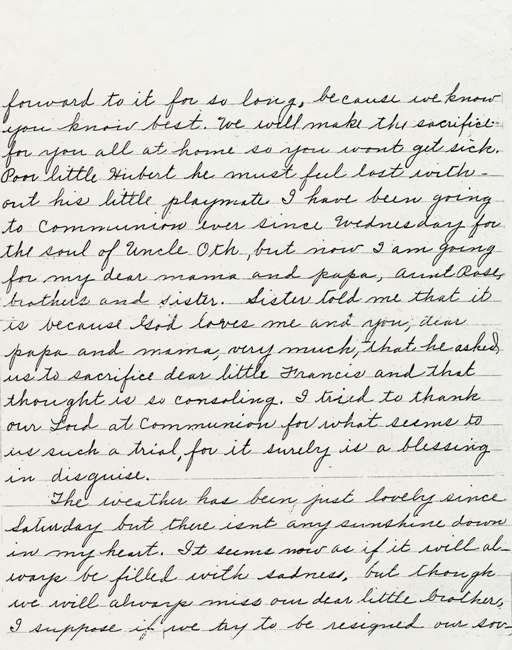 forward to it for so long, because we know
you know best. We will make the sacrifice
for you all at home so you wont get sick.
Poor little Hubert he must feel lost with-
out his little playmate I have been going
to Communion ever since Wednesday for
the soul of Uncle Oth, but now I am going
for my dear mama and papa, Aunt Rose,
brothers and sister. Sister told me that it
is because God loves me and you, dear
papa and mama, very much, that he asked
us to sacrifice dear little Francis and that
thought is so consoling. I tried to thank
our Lord at Communion for what seems to
us such a trial, for it surely is a blessing
in disguise.
The weather has been just lovely since
Saturday but there isnt any sunshine down
in my heart. It seems now as if it will al-
ways be filled with sadness, but though
we will always miss our dear little brother,
I suppose if we try to be resigned our sor-